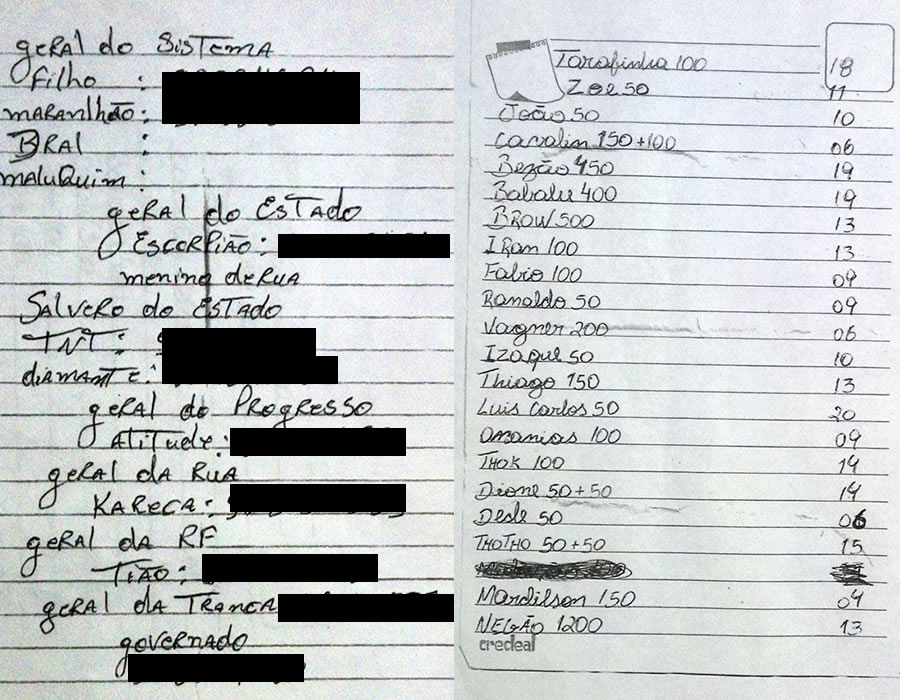 geral do Sistema
filho :
maranhão :
BRAL :
maluquim :
geral do Estado
Escorpião :
menino de rua
Salvero do Estado
TNT :
diamante :
geral do Progresso
Atitude :
geral da Rua
Kareca :
geral da RF
Tião :
geral da Tranca
governado
Tarafinha 100 18
Zoe 50 11
João 50 10
Cavalin 150+100 06
Bezão 450 19
Babalu 400 19
BROW 500 13
IRan 100 13
Fabio 100 09
Ronaldo 50 09
Vagner 200 06
Izaque 50 10
Thiago 150 13
Luis Carlos 50 20
Ananias 100 09
Thok 100 14
Dione 50+50 14
50 06
THOTHO 50+50 15
Mardilson 150 04
NEGÃO 1200 13
credeal